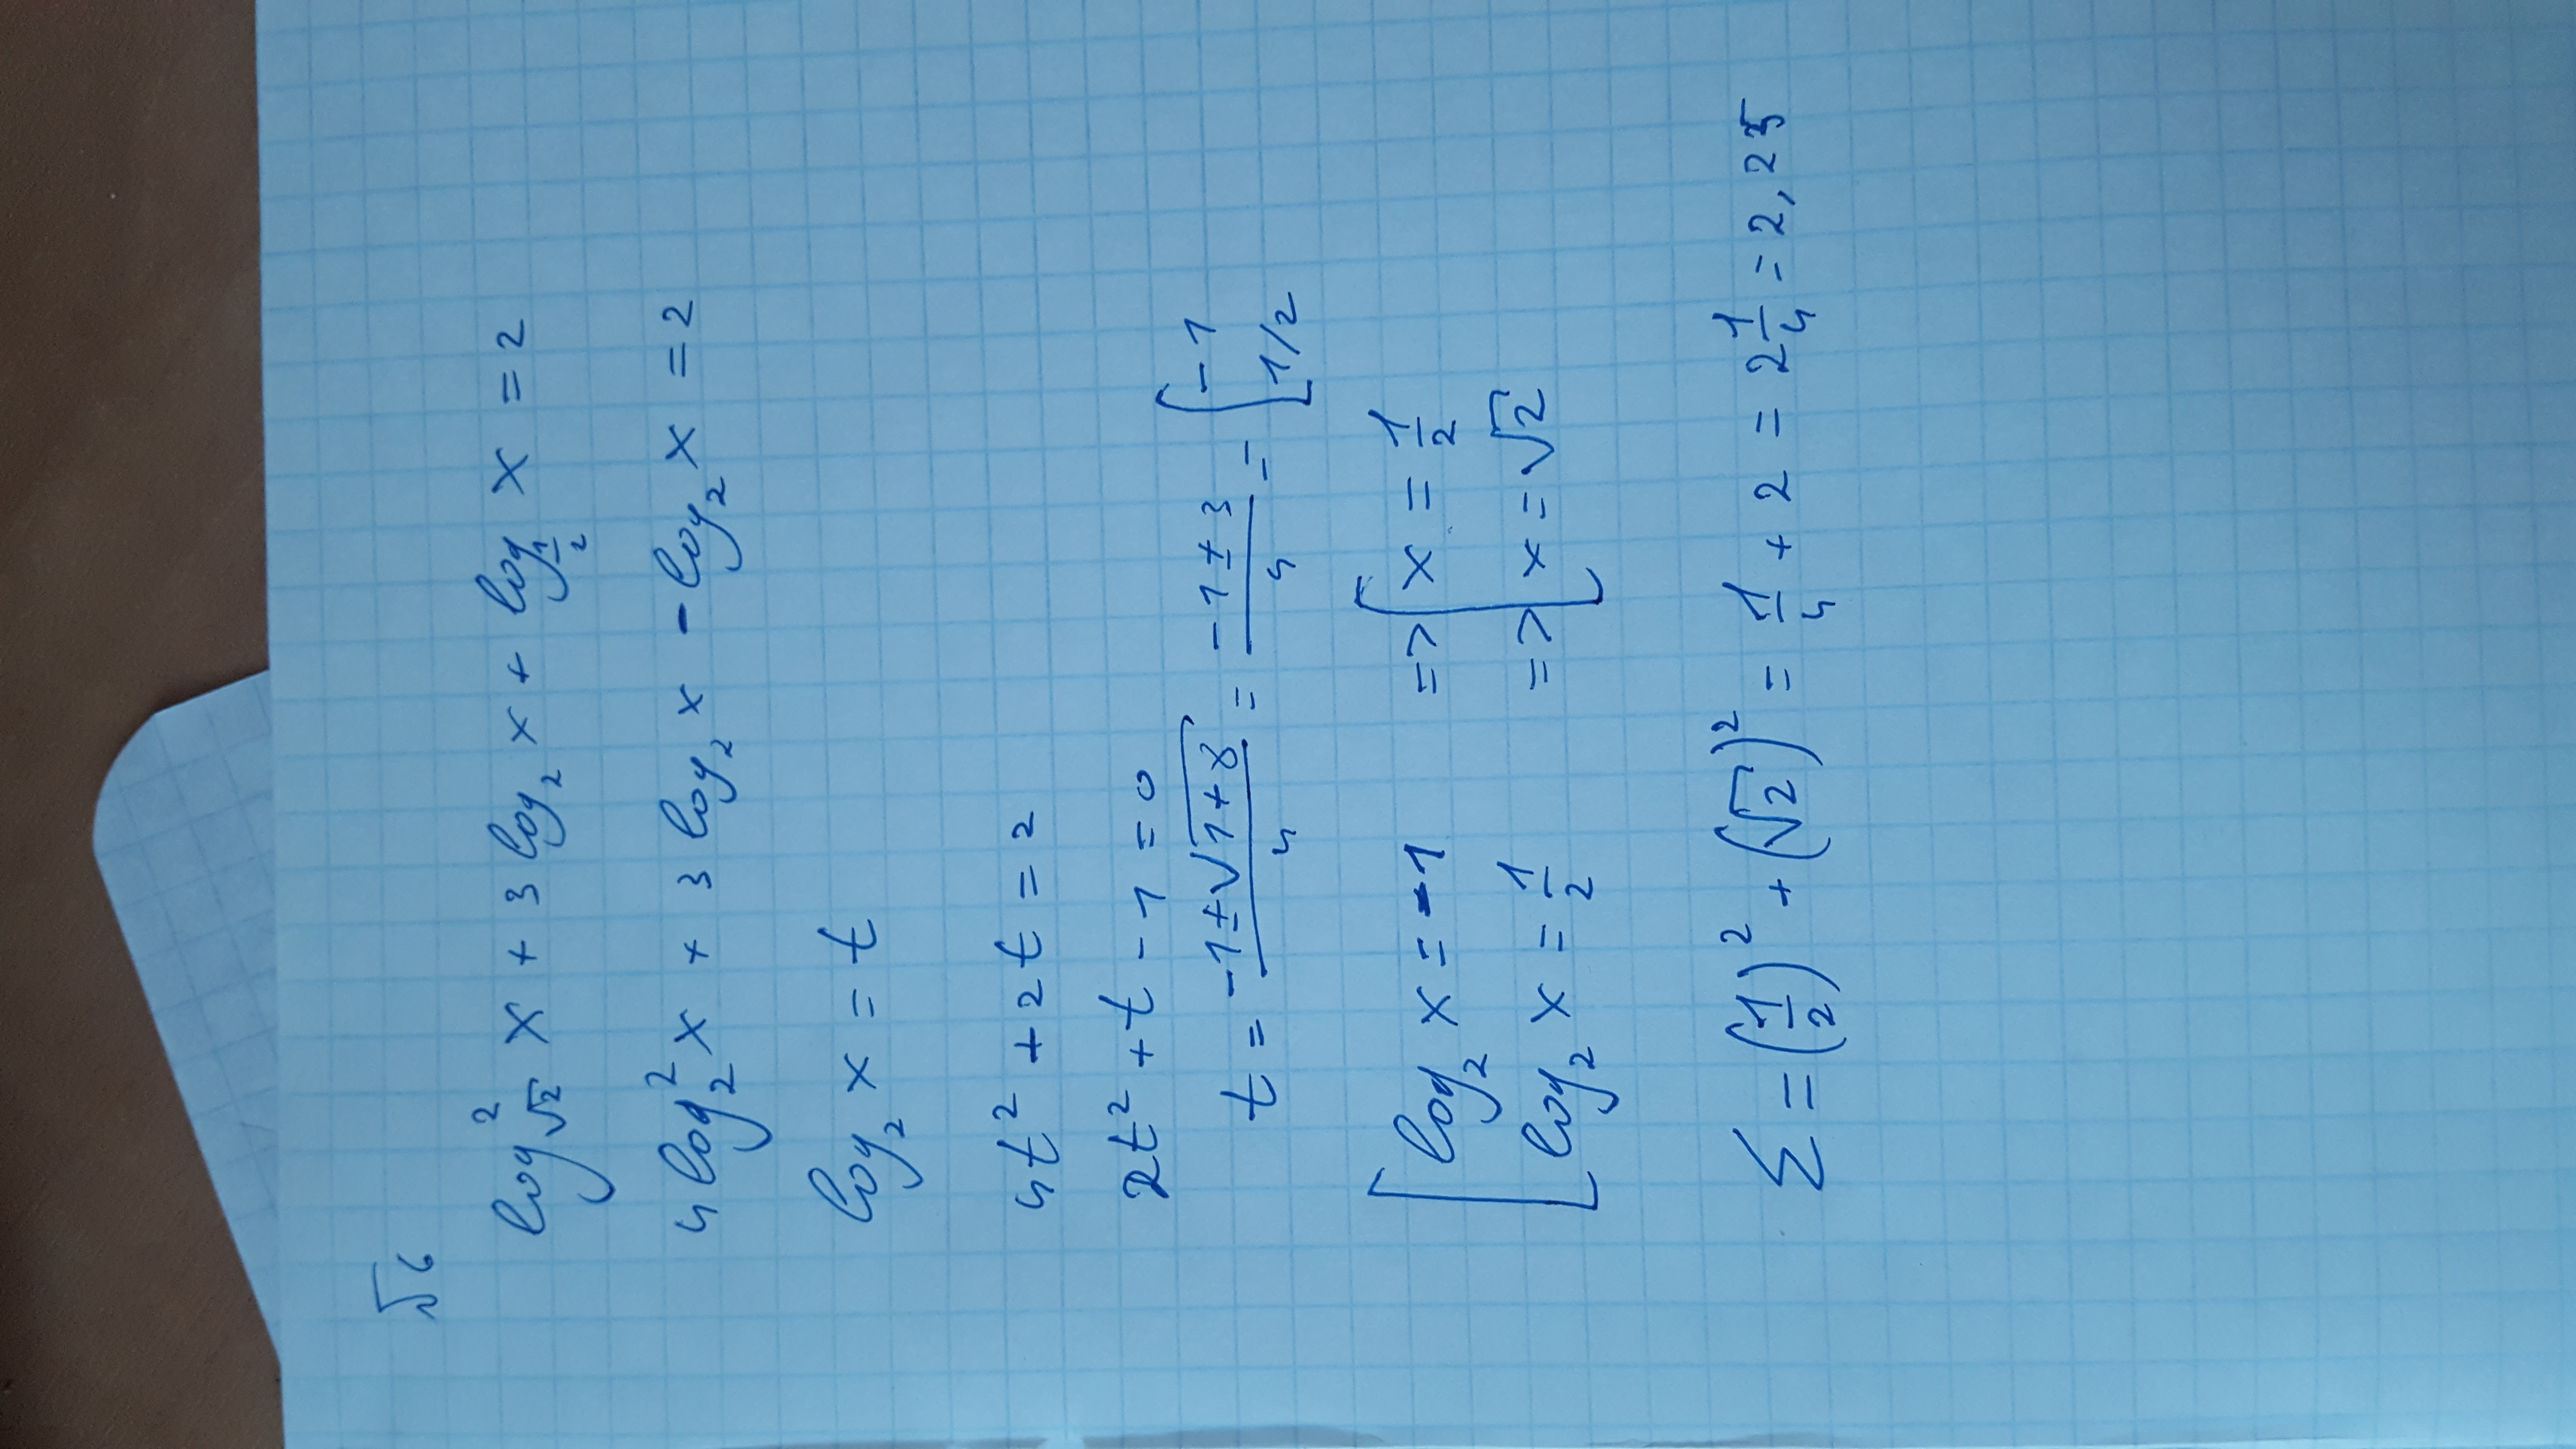 √6
log²_√2 x + 3 log₂ x + log_1/2 x = 2
4 log₂² x + 3 log₂ x - log₂ x = 2
log₂ x = t
4t² + 2t = 2
2t² + t - 1 = 0
t = (-1 ± √(1+8))/4 = (-1 ± 3)/4 = [ -1 ; 1/2
[ log₂ x = -1 => [ x = 1/2
log₂ x = 1/2 => x = √2
Σ = (1/2)² + (√2)² = 1/4 + 2 = 2 1/4 = 2,25